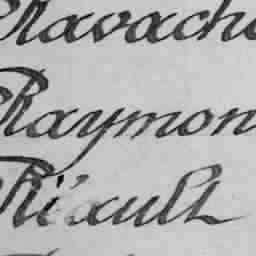 Ravach
Raymon
Riault